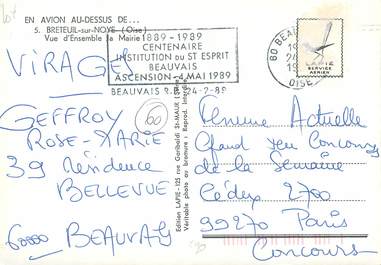 EN AVION AU-DESSUS DE...
5. BRETEUIL-sur-NOYE (Oise)
Vue d'Ensemble la Mairie
1889-1989
CENTENAIRE
INSTITUTION DU ST ESPRIT
BEAUVAIS
ASCENSION-4 MAI 1989
BEAUVAIS R.P. 24-2-89
60 BEAUVAIS
OISE
LAPIE
SERVICE
AERIEN
VIRAGES
GEFFROY
ROSE-MARIE
39 Résidence
BELLEVUE
60000 BEAUVAIS
60
Edition LAPIE - 125 rue Garibaldi St-MAUR (Seine)
Véritable photo au bromure - Reprod. Interdite
Femme Actuelle
Grand Jeu Concours
de la Semaine
Cédex 2700
99270 Paris
Concours